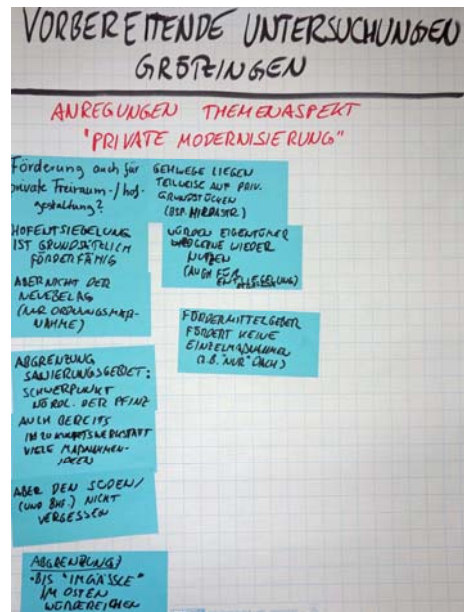 VORBEREITENDE UNTERSUCHUNGEN
GRÖTZINGEN
ANREGUNGEN THEMENASPEKT
"PRIVATE MODERNISIERUNG"
Förderung auch für
private Freiraum-/hof-
gestaltung?
HOFENTSIEGELUNG
IST GRUNDSÄTZLICH
FÖRDERFÄHIG
ABER NICHT DER
NEUE BELAG
(NUR ORDNUNGSMAß-
NAHME)
ABGRENZUNG
SANIERUNGSGEBIET:
SCHWERPUNKT
NÖRDL. DER PFINZ
AUCH BEREITS
IM ZUKUNFTSWERKSTATT
VIELE MAßNAHMEN-
IDEEN
ABER DEN SÜDEN/
(UND BHF.) NICHT
VERGESSEN
ABGRENZUNG
-BIS "IM GÄSSLE"
IM OSTEN
GEHWEGE LIEGEN
TEILWEISE AUF PRIV.
GRUNDSTÜCKEN
WÜRDEN EIGENTÜMER
GERNE WIEDER
NUTZEN
(AUCH FÜR
FÖRDERMITTELGEBER
FÖRDERT KEINE
EINZELMAßNAHMEN
(Z.B. "NUR" DACH)